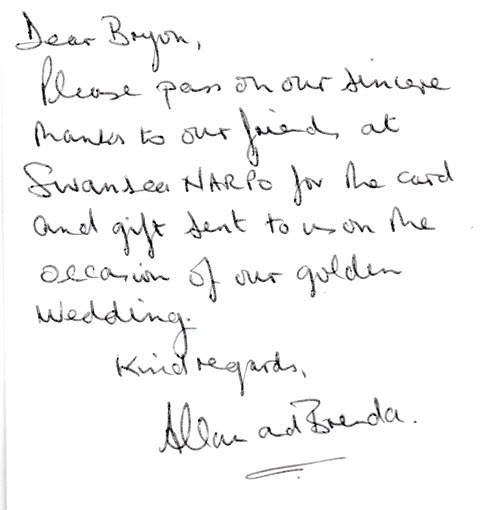 Dear Bryon,
Please pass on our sincere
thanks to our friends at
Swansea NARPO for the card
and gift sent to us on the
occasion of our golden
wedding.
Kind regards,
Allan and Brenda.